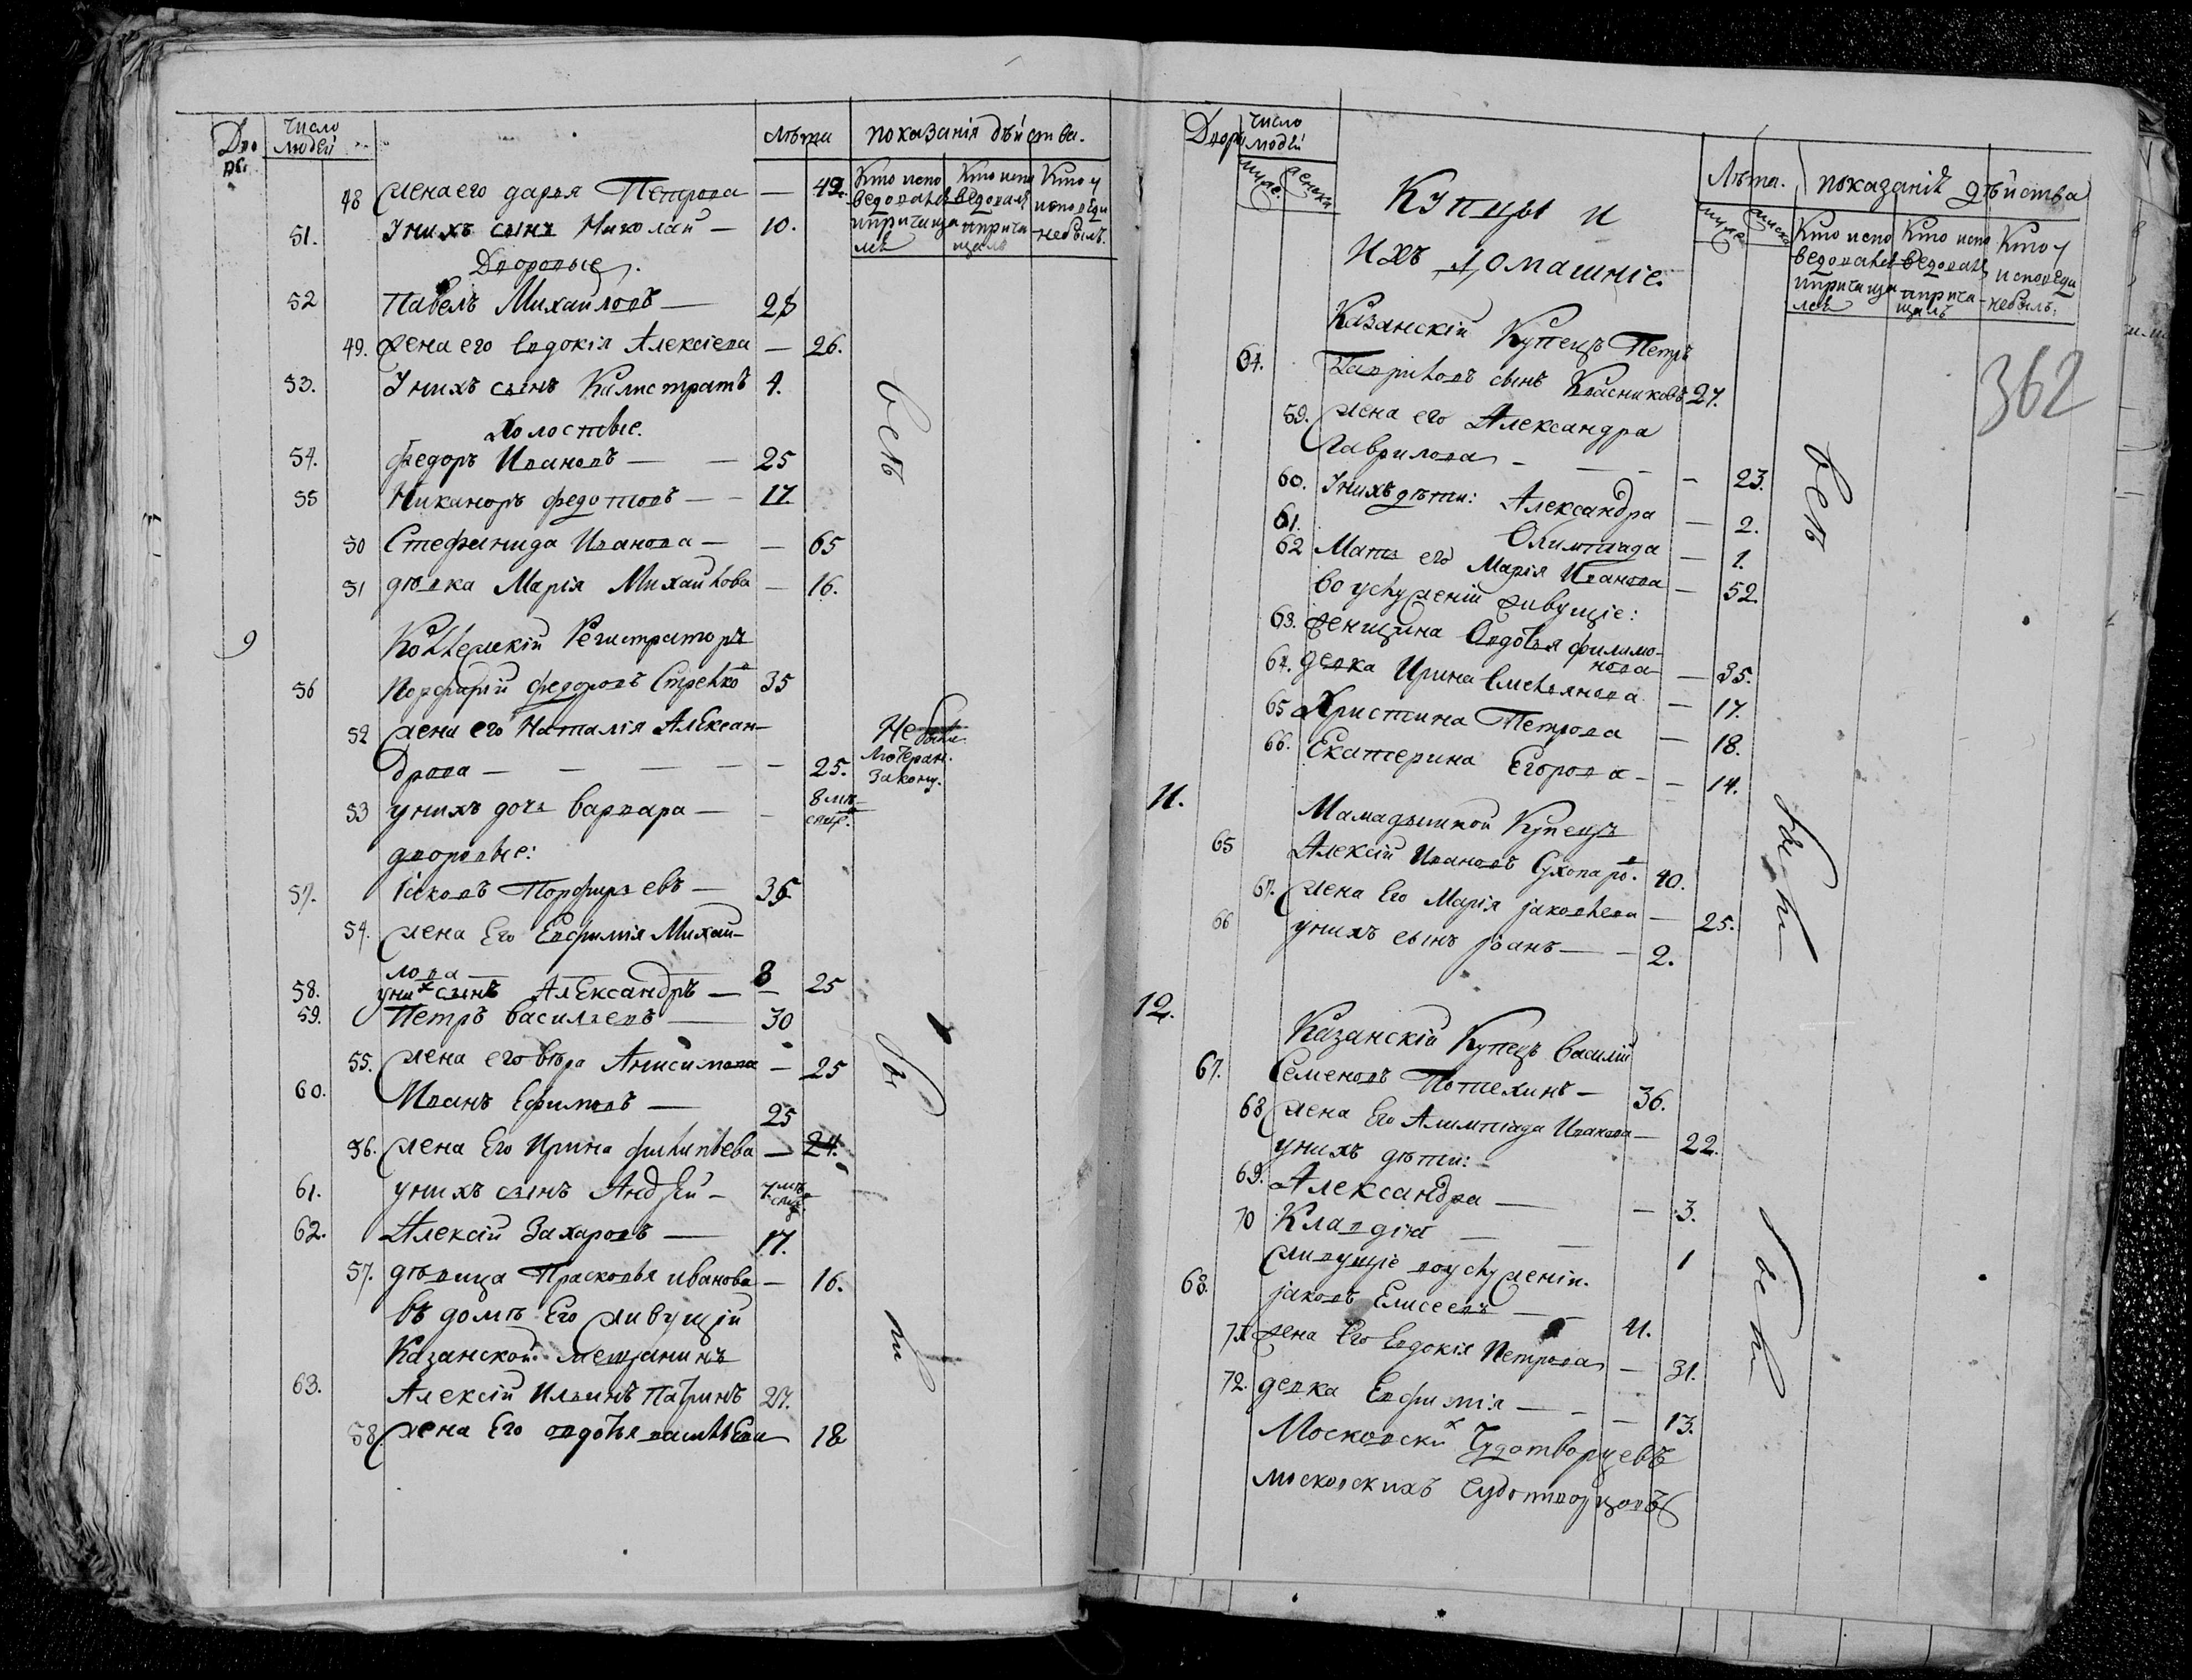 Дво
ры.
число
людей
лѣта
показанія дѣйства.
Кто испо
ведовался
и причаща
лся
Кто испо
ведовал
и прича
щалъ
Кто у
исповеди
небылъ.
48 жена его дарья Петрова — 42.
51. У нихъ сынъ Николай — 10.
Дворовые.
52 Павелъ Михайловъ — 28
49. жена его Евдокія Алексіева — 26.
53. У нихъ сынъ Калистратъ 4.
Холостые.
54. Федоръ Ивановъ — — 25
55 Никаноръ федотовъ — — 17.
50 Стефанида Иванова — — 65
51 дѣвка Марія Михайлова — 16.
9 Коллежскій Регистраторъ
56 Порфирій федоровъ 35
52 жена его Наталія Алексан-
дрова — — — — — 25.
Не были
Лютеран.
Закону.
53 у нихъ дочь варвара — — 8 мѣ-
сяц.
дворовые:
57. Іяковъ Порфирьевъ — 35
54. жена Его Евфимія Михай-
лова — — 25
58. у них сынъ Александръ — 8
59. Петръ васильевъ — 30
55. жена его вѣра Анисимова — 25
60. Иванъ Ефимовъ — 25
56. жена Его Ирина филипьева — 24.
61. у нихъ сынъ Андрей — 7. мѣ-
сяц.
62. Алексій Захаровъ — 17.
57. дѣвица Прасковья иванова — 16.
въ домѣ Его живущій
Казанской мещанинъ
63. Алексій Ильинъ 27.
58. жена Его авдотья 18
Дворы
число
людей
муже.
женска
Купцы и
ихъ домашніе.
Лѣта.
муже
женска
показаніи дѣйства
Кто испо
ведовался
и причаща
лся
Кто испо
ведовалъ
и прича-
щалъ
Кто у
исповеди
небылъ.
362
Казанскій Купецъ Петръ
64. Гавриловъ сынъ Квасниковъ 27.
59. жена его Александра
Гаврилова — — — — 23.
60. У нихъ дѣти: Александра — 2.
61. Олимпіада — 1.
62 Мать его Марія Иванова — 52.
во услуженіи живущіе:
63. женщина Авдотья филимо-
нова — 35.
64. девка Ирина Емельянова — 17.
65 Христина Петрова — 18.
66. Екатерина Егорова — — 14.
11. Мамадышской Купецъ
65 Алексій Ивановъ Сухопаро. 40.
67. жена Его Марія јаковлева — 25.
66 у нихъ сынъ јоанъ — — 2.
12. Казанскій Купецъ василій
67. Семеновъ Потехинъ — 36.
68 жена Его Алимпіада Иванова — 22.
у нихъ дѣти:
69. Александра — — 3.
70 Клавдія — — 1
живущіе воуслуженіи.
68. јаковъ Елисеевъ — — 41.
71 жена Его Евдокія Петрова — 31.
72. девка Евфимія — — — 13.
Московских Чудотворцевъ
московскихъ чудотворцовъ